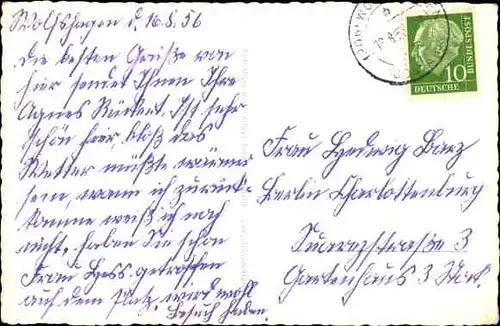 Wolfshagen d. 16.8.56
die besten Grüße von
hier sendet Ihnen Ihre
Agnes Rückert. Ist sehr
schön hier, bloß das
Wetter müßte wärmer
sein, wann ich zurück-
komme weiß ich noch
nicht. haben Sie schon
Frau Hess getroffen
auf dem Platz, wird wohl
Besuch haben.
Frau Hedwig Barz
Berlin Charlottenburg
Suarezstraße 3
Gartenhaus 3 Stck.
10
DEUTSCHE
BUNDESPOST